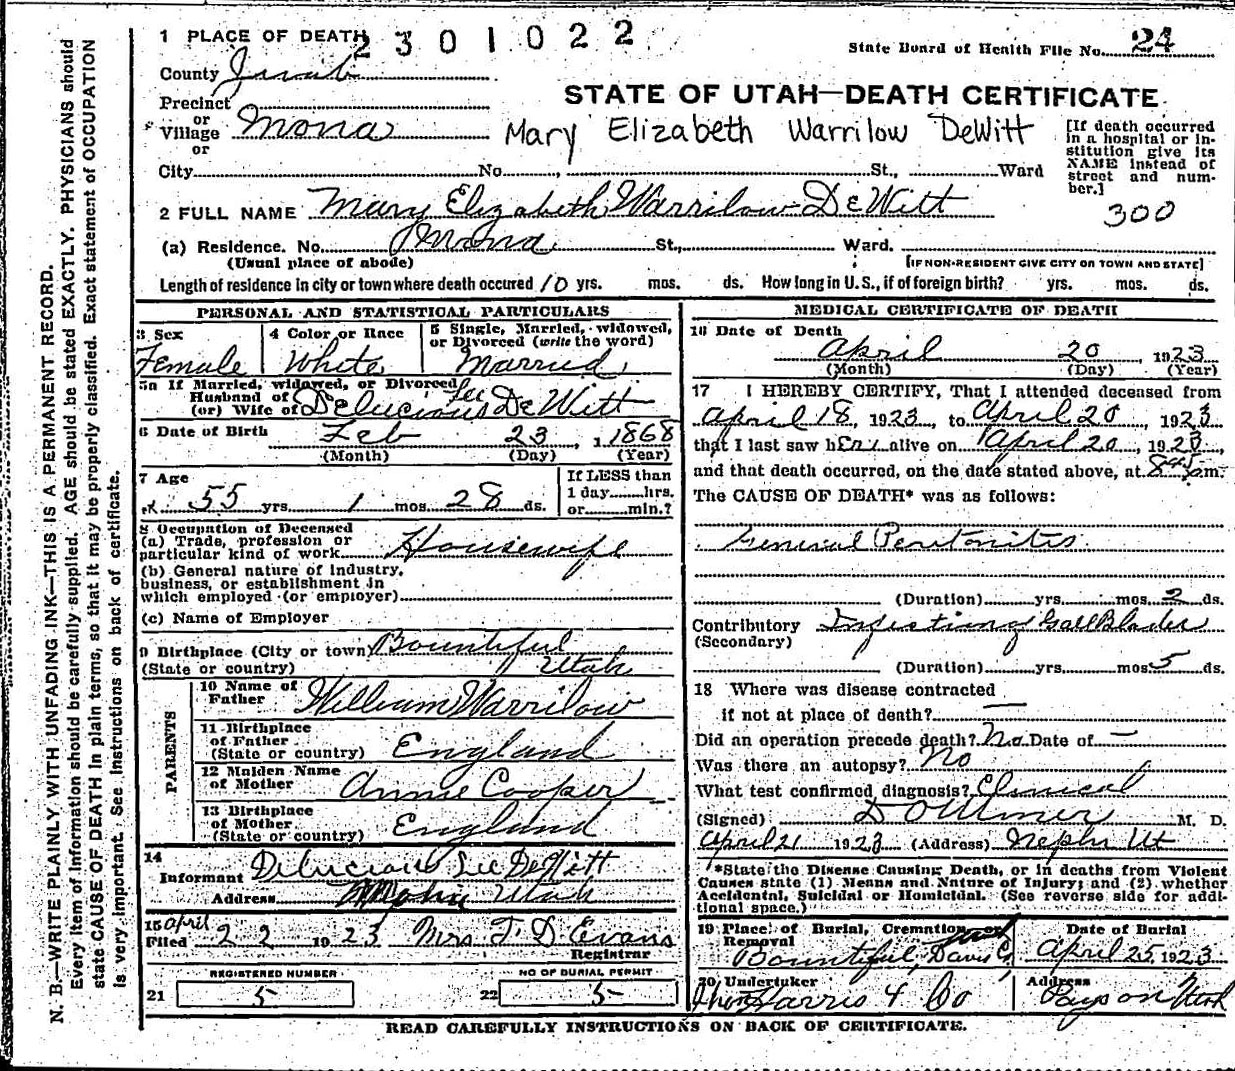 N. B.—WRITE PLAINLY WITH UNFADING INK—THIS IS A PERMANENT RECORD.
Every item of information should be carefully supplied. AGE should be stated EXACTLY. PHYSICIANS should
state CAUSE OF DEATH in plain terms, so that it may be properly classified. Exact statement of OCCUPATION
is very important. See instructions on back of certificate.
1 PLACE OF DEATH
2301022
State Board of Health File No. 24
County Juab
STATE OF UTAH—DEATH CERTIFICATE
Precinct
or
Village Mona
or
Mary Elizabeth Warrilow DeWitt
[If death occurred
in a hospital or in-
stitution give its
NAME instead of
street and num-
ber.]
City No. St., Ward
2 FULL NAME Mary Elizabeth Warrilow DeWitt
300
(a) Residence. No. Mona St., Ward.
(Usual place of abode) [IF NON-RESIDENT GIVE CITY OR TOWN AND STATE]
Length of residence in city or town where death occured 10 yrs. mos. ds. How long in U. S., if of foreign birth? yrs. mos. ds.
PERSONAL AND STATISTICAL PARTICULARS
3 Sex
Female
4 Color or Race
White
5 Single, Married, widowed,
or Divorced (write the word)
Married
5a If Married, widowed, or Divorced
Husband of
(or) Wife of Delucious Lee DeWitt
6 Date of Birth Feb 23, 1 1868
(Month) (Day) (Year)
7 Age
55 yrs. 1 mos. 28 ds.
If LESS than
1 day hrs.
or min.?
8 Occupation of Deceased
(a) Trade, profession or
particular kind of work Housewife
(b) General nature of industry,
business, or establishment in
which employed (or employer)
(c) Name of Employer
9 Birthplace (City or town) Bountiful
(State or country) Utah
PARENTS
10 Name of
Father William Warrilow
11 Birthplace
of Father
(State or country) England
12 Maiden Name
of Mother Annie Cooper
13 Birthplace
of Mother
(State or country) England
14
Informant Delucious Lee DeWitt
Address Mona Utah
15 April
Filed 22 1923 Mrs T D Evans
Registrar
REGISTERED NUMBER
21 5
NO OF BURIAL PERMIT
22 5
MEDICAL CERTIFICATE OF DEATH
16 Date of Death
April 20, 1923
(Month) (Day) (Year)
17 I HEREBY CERTIFY, That I attended deceased from
April 18, 1923 to April 20, 1923
that I last saw her alive on April 20, 1923,
and that death occurred, on the date stated above, at 845 m.
The CAUSE OF DEATH* was as follows:
General Peritonitis
(Duration) yrs. mos. 2 ds.
Contributory Infection of Gall Bladder
(Secondary)
(Duration) yrs. mos. 5 ds.
18 Where was disease contracted
if not at place of death? —
Did an operation precede death? No Date of —
Was there an autopsy? No
What test confirmed diagnosis? Clinical
(Signed) M. D.
April 21 1923 (Address) Nephi Ut
*State the Disease Causing Death, or in deaths from Violent
Causes state (1) Means and Nature of Injury; and (2) whether
Accidental, Suicidal or Homicidal. (See reverse side for addi-
tional space.)
19 Place of Burial, Cremation or
Removal
Bountiful, Davis Co,
Date of Burial
April 25, 1923
20 Undertaker
Harris & Co
Address
Payson Utah
READ CAREFULLY INSTRUCTIONS ON BACK OF CERTIFICATE.